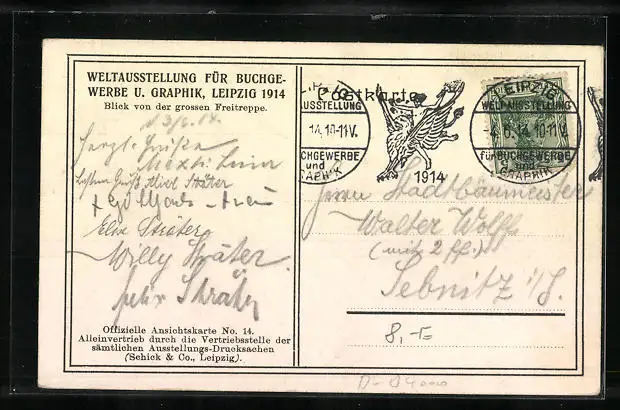 WELTAUSSTELLUNG FÜR BUCHGE-
WERBE U. GRAPHIK, LEIPZIG 1914
Blick von der grossen Freitreppe.
3/6.14.
Herzl. Grüße
Sträter
Else Sträter
Willy Sträter
Felix Sträter
Offizielle Ansichtskarte No. 14.
Alleinvertrieb durch die Vertriebsstelle der
sämtlichen Ausstellungs-Drucksachen
(Schick & Co., Leipzig).
Postkarte
USSTELLUNG
14.10-11V.
CHGEWERBE
und
GRAPHIK
1914
LEIPZIG
WELTAUSSTELLUNG
-4.6.14.10-11V.
für BUCHGEWERBE
und
GRAPHIK
Herrn Stadtbaumeister
Walter Wolff
(mit 2 ff.)
Sebnitz i/S.
8,-